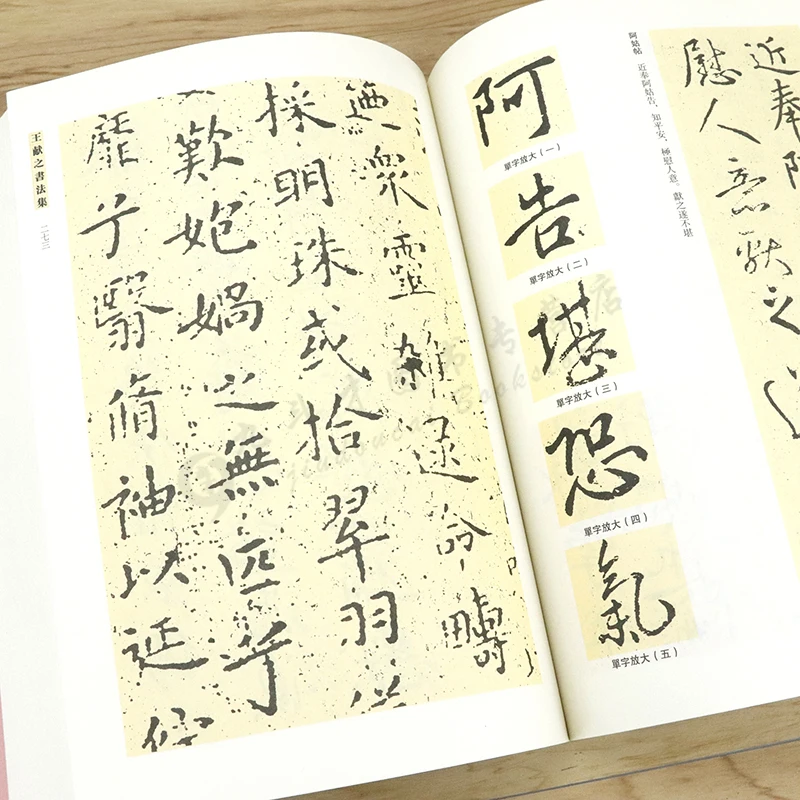 近奉阿
慰人意獻之遂
阿姑帖　近奉阿姑告，知平安，極慰人意。獻之遂不堪
阿
單字放大（一）
告
單字放大（二）
堪
單字放大（三）
恐
單字放大（四）
氣
單字放大（五）
迺眾靈雜遝命疇
採明珠或拾翠羽從
歎媧之無匹兮
靡兮翳脩袖以延佇
王獻之書法集
二七三